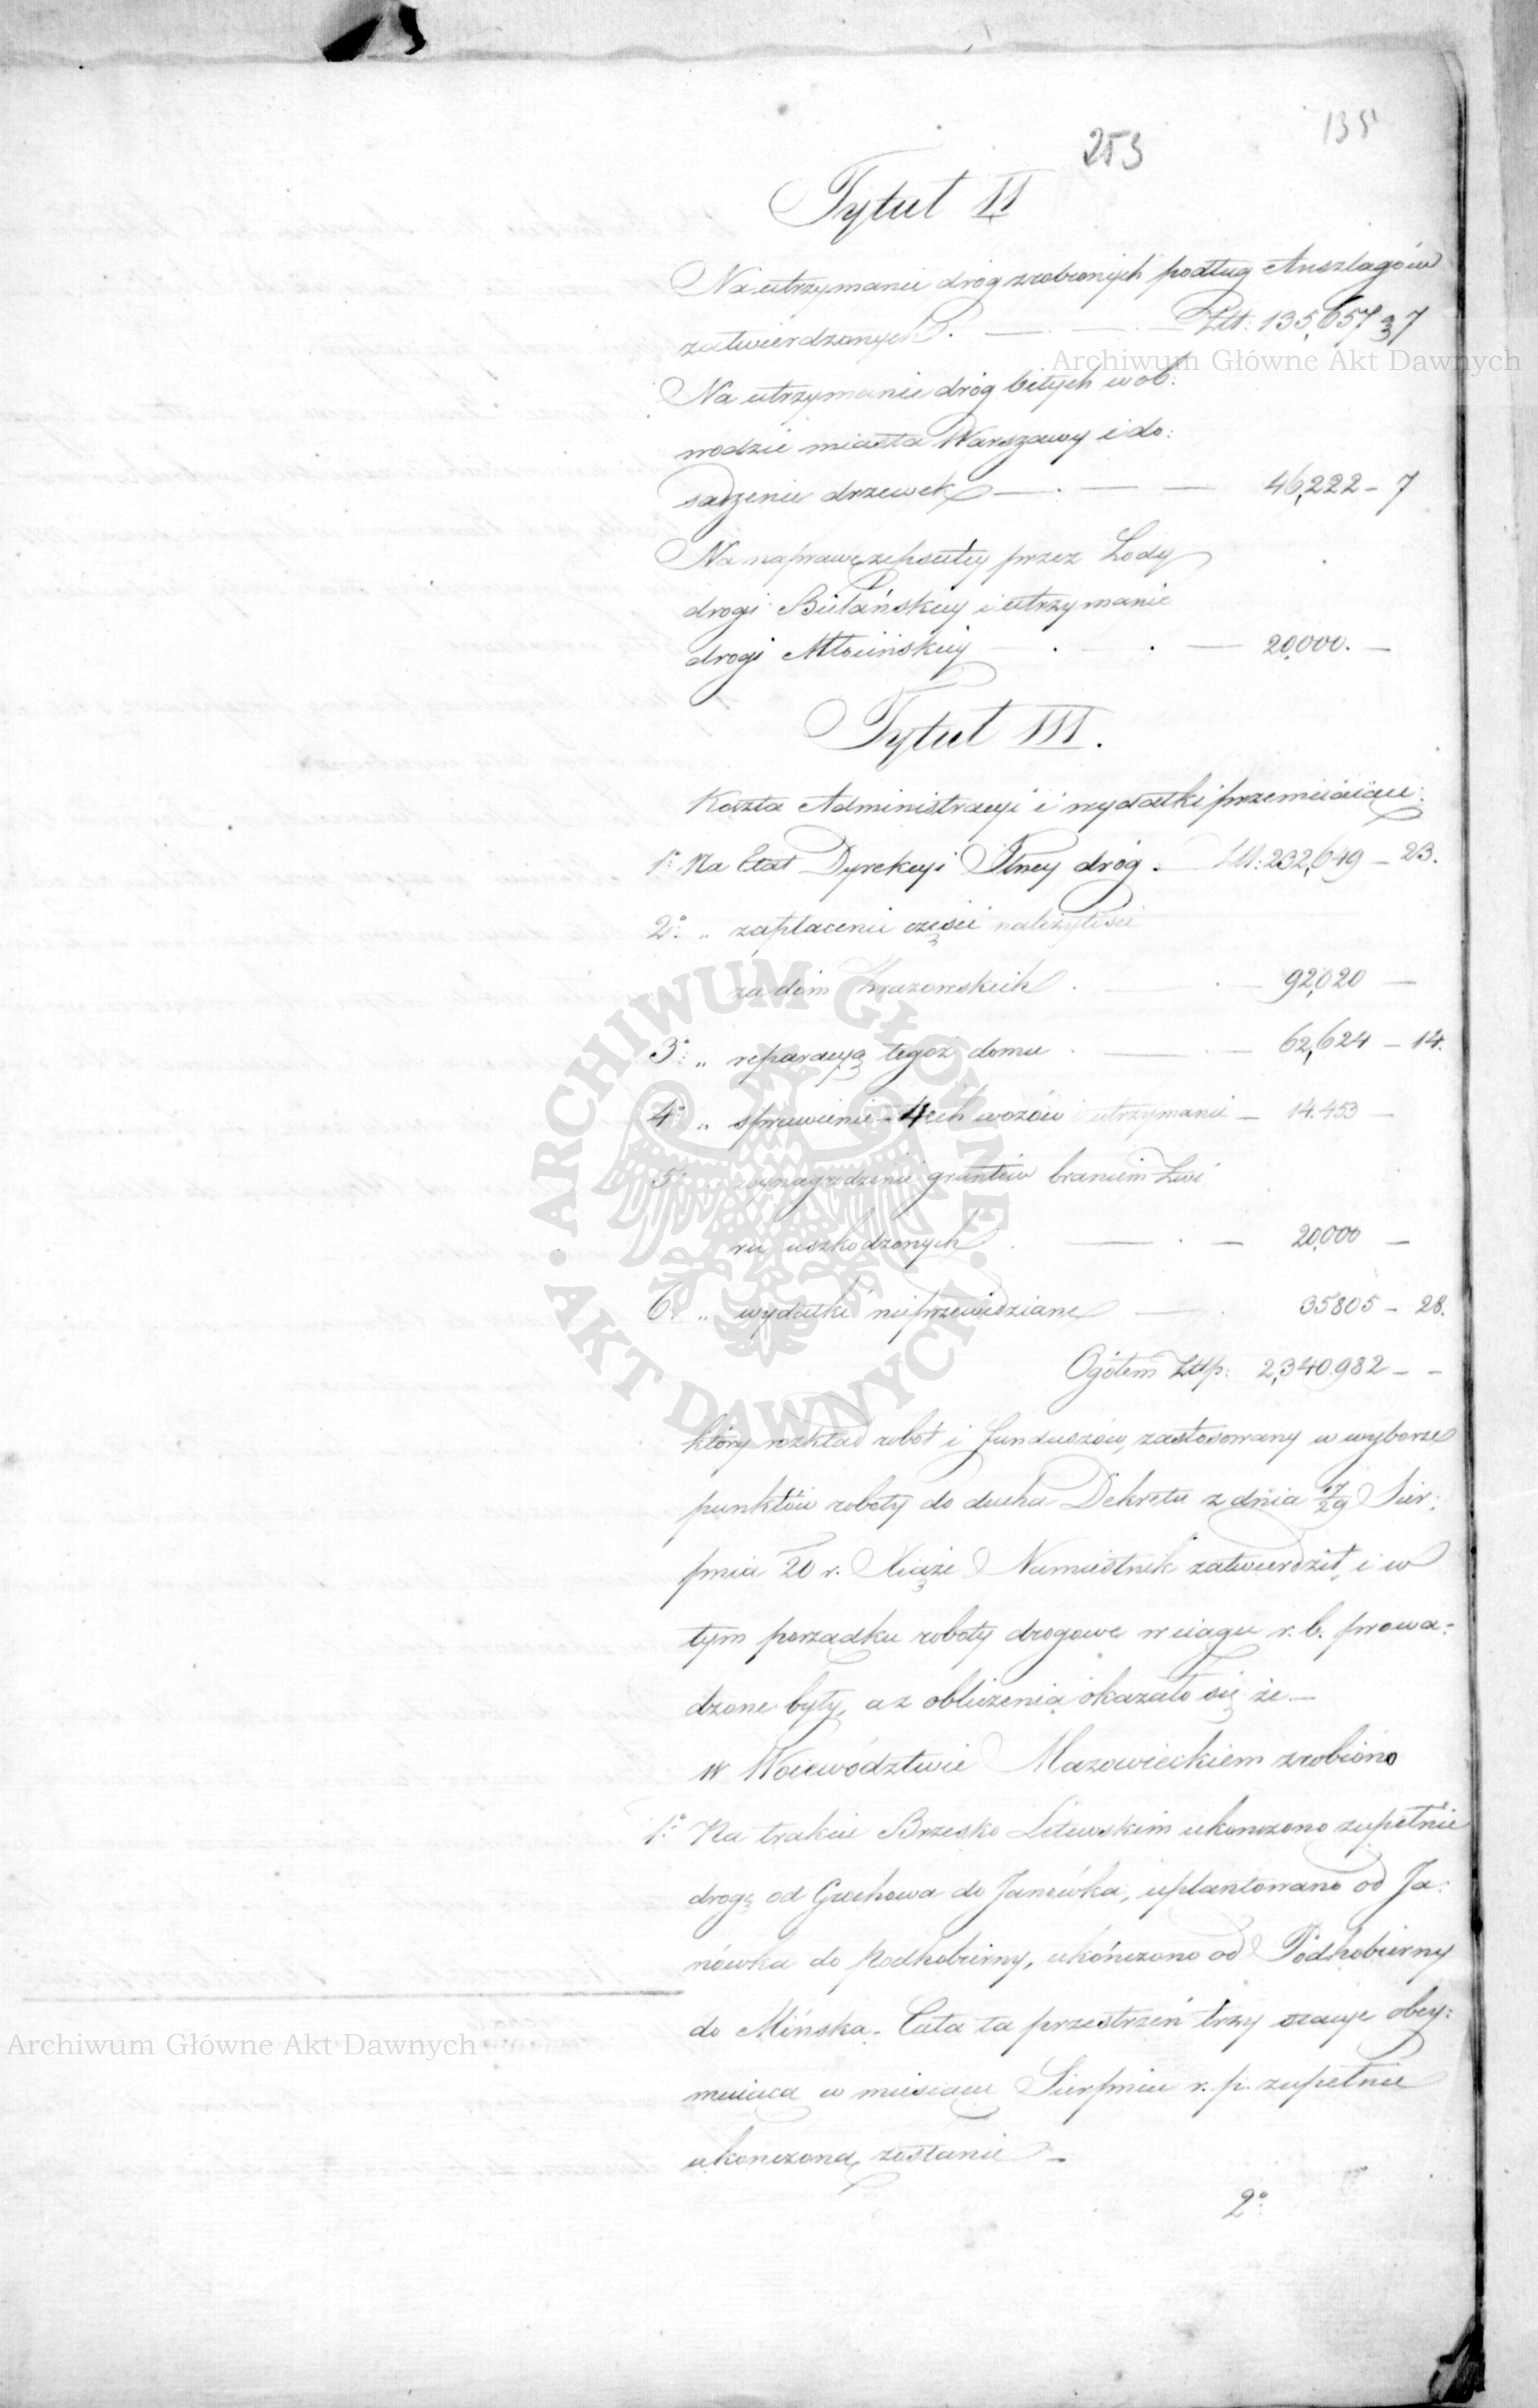 253
135
Tytuł II
Na utrzymanie dróg zrobionych podług Anszlagów
zatwierdzonych. — Złt: 135,657 7
Archiwum Główne Akt Dawnych
Na utrzymanie dróg bitych w ob:
wodzie miasta Warszawy i do:
sadzenie drzewek — . — — 46,222 – 7
Na naprawę zepsutey przez Lody
drogi Bielańskiey i utrzymanie
drogi Młocińskiey — . — . — 20,000. —
Tytuł III.
Koszta Administracyi i wydatki przemiiaiące:
1o: Na Etat Dyrekcyi Jlney dróg. Złt: 232,649 – 23.
2o: „ zapłacenie części należytości
za dom . — . — 92,020 —
3o: „ reparacyą tegoż domu . — . — 62,624 – 14.
4o: „ sprawienie 4ech wozów i utrzymanie — 14.453 —
5o: wynagrodzenie gruntów braniem Żwi
ru uszkodzonych . — . — 20,000 —
6. „ wydatki nieprzewidziane — . 35805 – 28.
Ogółem Złtp: 2,340.982 – –
który rozkład robót i funduszów, zastosowany w wyborze
punktów roboty do ducha Dekretu z dnia 17/29 Sier:
pnia 20 r. Xiąże Namiestnik zatwierdził, i w
tym porządku roboty drogowe w ciągu r. b. prowa:
dzone były, a z obliczenia okazało się że —
w Woiewództwie Mazowieckiem zrobiono
1o: Na trakcie Brzesko Litewskim ukończono zupełnie
drogę od Grochowa do Janówka, uplantowano od Ja:
nówka do Podkobierny, ukończono od Podkobierny
do Mińska. Cała ta przestrzeń trzy stacye obey:
Archiwum Główne Akt Dawnych
muiąca w miesiącu Sierpniu r. p. zupełnie
ukończoną zostanie —
2o:
ARCHIWUM GŁÓWNE AKT DAWNYCH